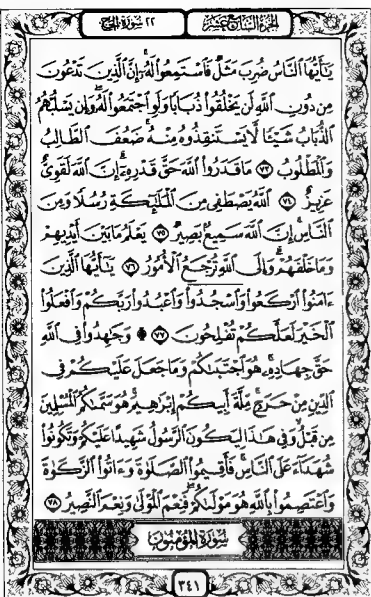 الجزء السابع عشر
٢٢ سورة الحج
يَـٰٓأَيُّهَا ٱلنَّاسُ ضُرِبَ مَثَلٌ فَٱسْتَمِعُوا۟ لَهُۥٓ ۚ إِنَّ ٱلَّذِينَ تَدْعُونَ
مِن دُونِ ٱللَّهِ لَن يَخْلُقُوا۟ ذُبَابًا وَلَوِ ٱجْتَمَعُوا۟ لَهُۥ ۖ وَإِن يَسْلُبْهُمُ
ٱلذُّبَابُ شَيْـًٔا لَّا يَسْتَنقِذُوهُ مِنْهُ ۚ ضَعُفَ ٱلطَّالِبُ
وَٱلْمَطْلُوبُ ٧٣ مَا قَدَرُوا۟ ٱللَّهَ حَقَّ قَدْرِهِۦٓ ۗ إِنَّ ٱللَّهَ لَقَوِىٌّ
عَزِيزٌ ٧٤ ٱللَّهُ يَصْطَفِى مِنَ ٱلْمَلَـٰٓئِكَةِ رُسُلًا وَمِنَ
ٱلنَّاسِ ۚ إِنَّ ٱللَّهَ سَمِيعٌۢ بَصِيرٌ ٧٥ يَعْلَمُ مَا بَيْنَ أَيْدِيهِمْ
وَمَا خَلْفَهُمْ ۗ وَإِلَى ٱللَّهِ تُرْجَعُ ٱلْأُمُورُ ٧٦ يَـٰٓأَيُّهَا ٱلَّذِينَ
ءَامَنُوا۟ ٱرْكَعُوا۟ وَٱسْجُدُوا۟ وَٱعْبُدُوا۟ رَبَّكُمْ وَٱفْعَلُوا۟
ٱلْخَيْرَ لَعَلَّكُمْ تُفْلِحُونَ ۩ ٧٧ وَجَـٰهِدُوا۟ فِى ٱللَّهِ
حَقَّ جِهَادِهِۦ ۚ هُوَ ٱجْتَبَىٰكُمْ وَمَا جَعَلَ عَلَيْكُمْ فِى
ٱلدِّينِ مِنْ حَرَجٍ ۚ مِّلَّةَ أَبِيكُمْ إِبْرَٰهِيمَ ۚ هُوَ سَمَّىٰكُمُ ٱلْمُسْلِمِينَ
مِن قَبْلُ وَفِى هَـٰذَا لِيَكُونَ ٱلرَّسُولُ شَهِيدًا عَلَيْكُمْ وَتَكُونُوا۟
شُهَدَآءَ عَلَى ٱلنَّاسِ ۚ فَأَقِيمُوا۟ ٱلصَّلَوٰةَ وَءَاتُوا۟ ٱلزَّكَوٰةَ
وَٱعْتَصِمُوا۟ بِٱللَّهِ هُوَ مَوْلَىٰكُمْ ۖ فَنِعْمَ ٱلْمَوْلَىٰ وَنِعْمَ ٱلنَّصِيرُ ٧٨
سورة المؤمنون
٣٤١